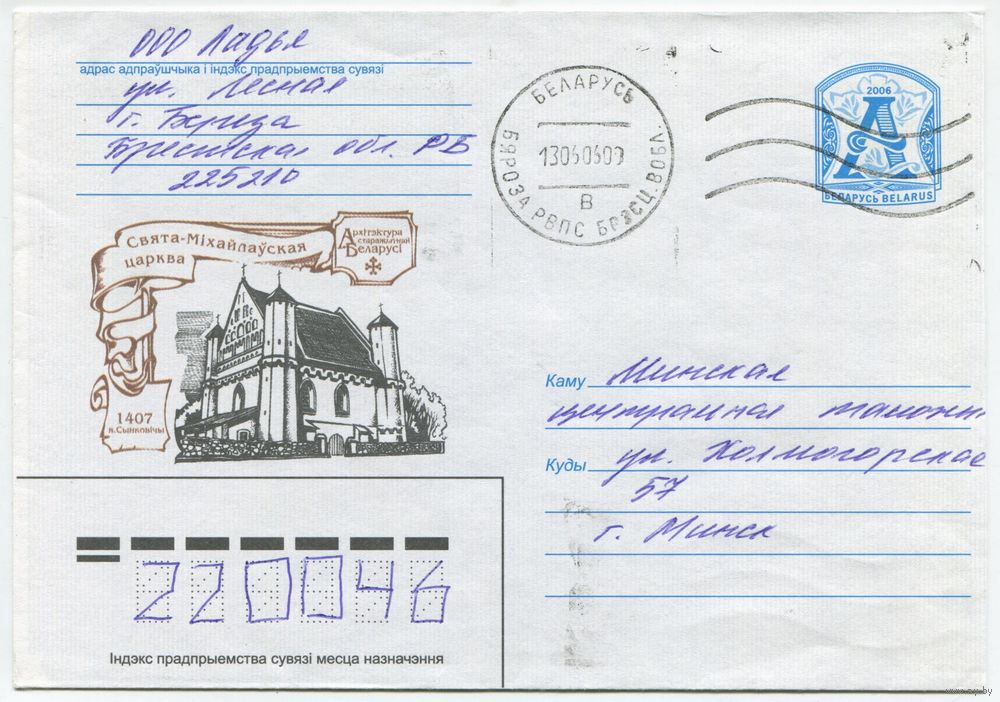 ООО Ладья
адрас адпраўшчыка і індэкс прадпрыемства сувязі
ул. Лесная
г. Береза
Брестская обл. РБ
225210
БЕЛАРУСЬ
13040609
В
БЯРОЗА РВПС БРЭСЦ. ВОБЛ.
2006
А
БЕЛАРУСЬ BELARUS
Свята-Міхайлаўская
царква
Архітэктура
старажытнай
Беларусі
1407
в. Сынковічы
Каму Минская
центральная таможн
Куды ул. Холмогорская
57
г. Минск
220046
Індэкс прадпрыемства сувязі месца назначэння